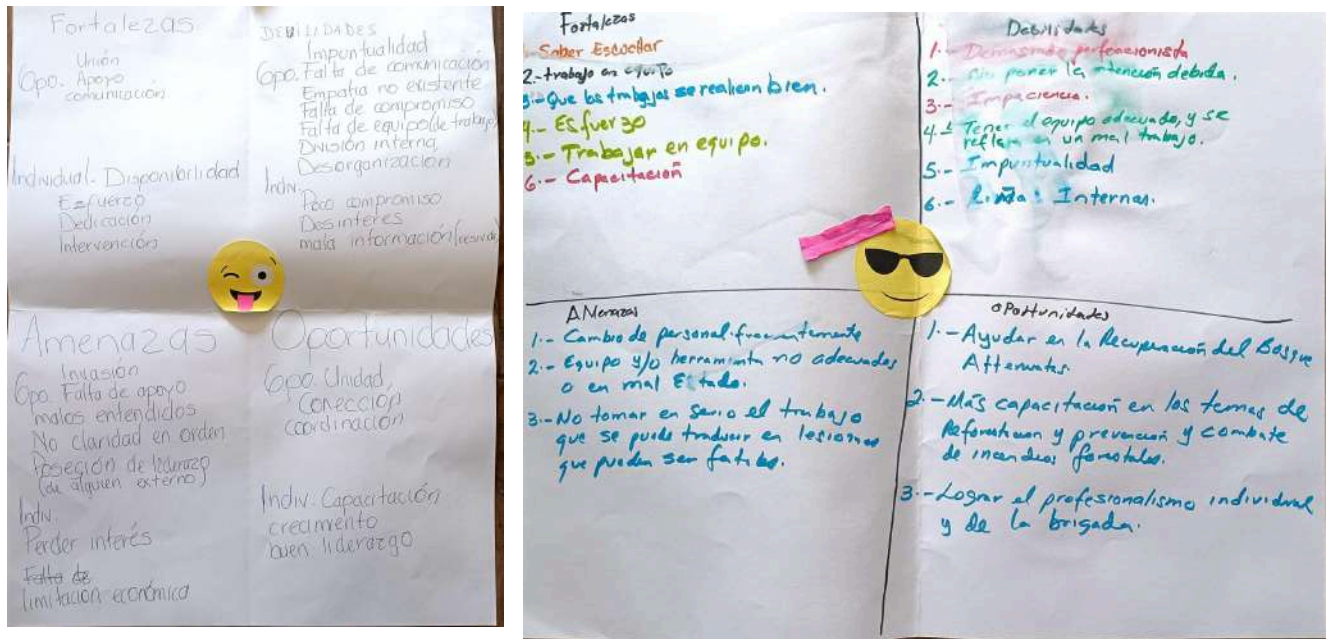 Fortalezas
Unión
Gpo. Apoyo
comunicación
Individual. Disponibilidad
Esfuerzo
Dedicación
Intervención
DEBILIDADES
Impuntualidad
Gpo. Falta de comunicación
Empatia no existente
Falta de compromiso
Falta de equipo (de trabajo)
División interna
Desorganización
Indiv.
Poco compromiso
Desinteres
mala información
Amenazas
Invasión
Gpo Falta de apoyo
malos entendidos
No claridad en orden
Poseción de liderazgo
(de alguien externo)
Indiv.
Perder interés
Falta de
limitación económica
Oportunidades
Gpo. Unidad
Conección
coordinación
Indiv. Capacitación
crecimiento
buen liderazgo
Fortalezas
1.- Saber Escuchar
2.- trabajo en equipo
3.- Que los trabajos se realicen bien.
4.- Esfuerzo
5.- Trabajar en equipo.
6.- Capacitación
Debilidades
1.- Demasiado perfeccionista
2.- No poner la atención debida.
3.- Impaciencia.
4.- Tener el equipo adecuado, y se
refleja en un mal trabajo.
5.- Impuntualidad
6.- Internas.
AMenazas
1.- Cambio de personal frecuentemente
2.- Equipo y/o herramienta no adecuados
o en mal Estado.
3.- No tomar en serio el trabajo
que se puede traducir en lesiones
que puedan ser fatales.
oPortunidades
1.- Ayudar en la Recuperación del Bosque
2.- Más capacitación en los temas de
Reforestacion y prevención y combate
de incendios forestales.
3.- Lograr el profesionalismo individual
y de la brigada.